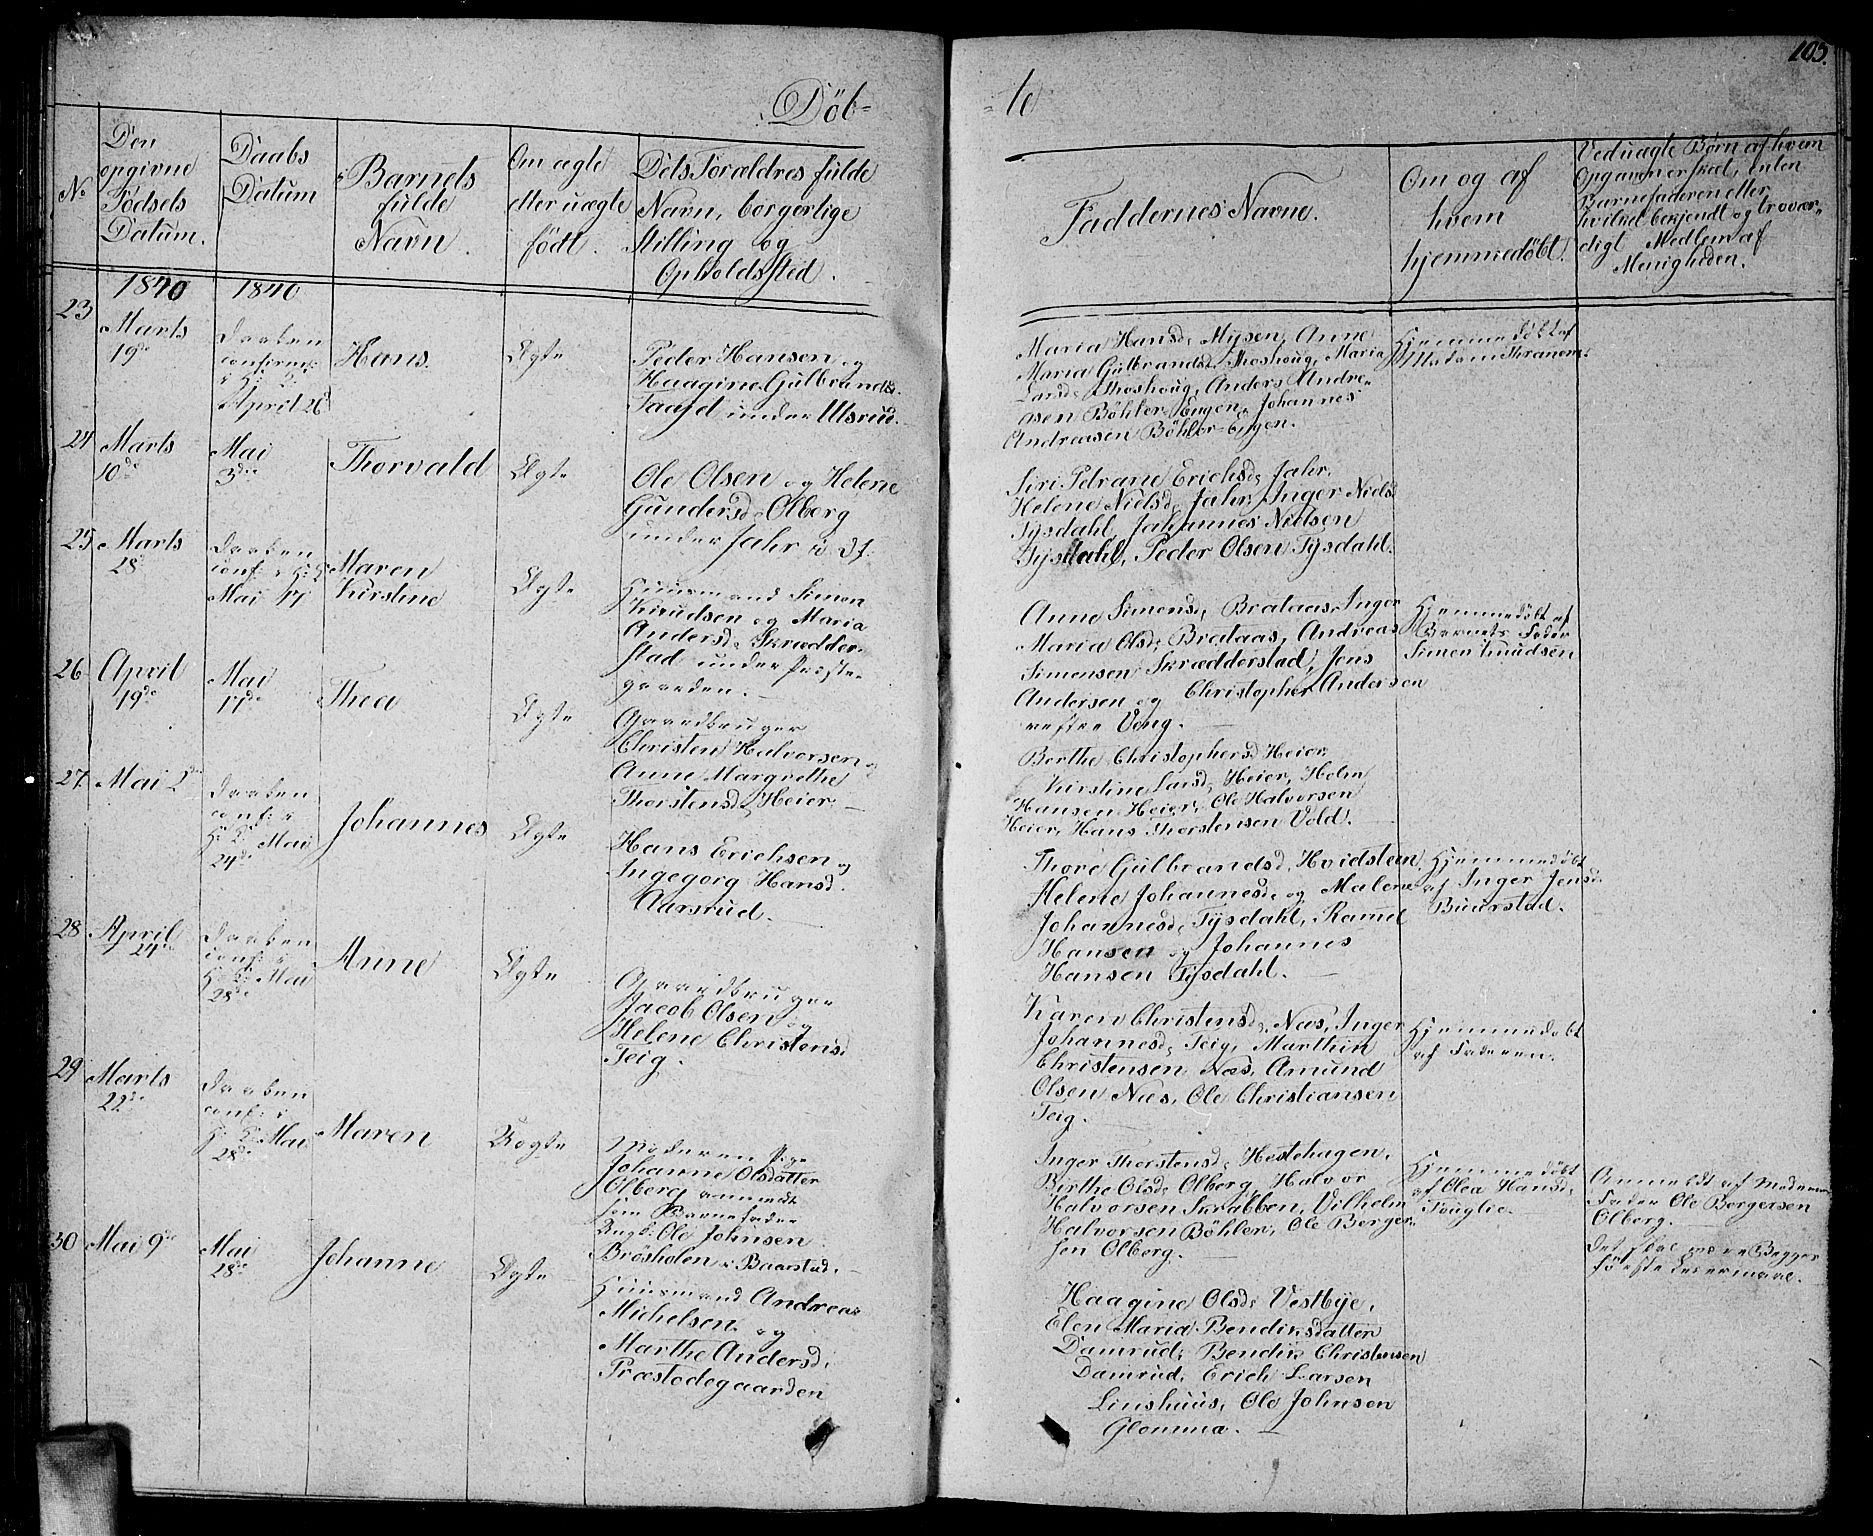 103.
Döb=
=te
No
Den
opgivne
Födsels
Datum.
Daabs
Datum
Barnets
fulde
Navn
Om ægte
eller uægte
födt.
Dets Forældres fulde
Navn, borgerlige
Stilling og
Opholdssted.
Faddernes Navne.
Om og af
hvem
hjemmedöbt.
Ved uægte Börn af hvem
Opgaven er skeet, enten
Barnefaderen eller
hvilket bekjendt og trovær-
digt Medlem af
Menigheden.
1840
1840
23
Marts
19de
Daaben
confirm:
i H: K:
April 26
Hans.
Ægte
Peder Hansen og
Haagine Gulbrandsd.
Taajet under Ulsrud.
Maria Hansd. Mysen, Anne
Maria Gulbrandsd. Skoshoug, Maria
Larsd. Skoshoug, Anders Andre-
asen Böhler-Engen, Johannes
Andreasen Böhler-Engen.
Hjemmedöbt af
Madam
24
Marts
10de
Mai
3die
Thorvald
Ægte
Ole Olsen og Helene
Gundersd. Olberg
under Jahr
Siri Petrane Erichsd. Jahr,
Helene Nielsd. Jahr, Inger Nielsd.
Tysdahl, Johannes Nielsen
Tysdahl, Peder Olsen Tysdahl.
25
Marts
28
Daaben
conf: i H: K:
Mai 17
Maren
Kirstine
Ægte
Huusmand Simen
Knudsen og Maria
Andersd. Skrædder-
stad under Præste-
gaarden.
Anne Simensd. Brataas, Inger
Maria Olsd. Brataas, Andreas
Simensen Skrædderstad, Jens
Andersen og Christopher Andersen
Veng.
Hjemmedöbt af
Barnets Fader
Simen Knudsen
26
April
19de
Mai
17de
Thea
Ægte
Gaardbruger
Christen Halvorsen og
Anne Margrethe
Thorstensd. Heier.
Berthe Christophersd. Heier,
Kirstine Larsd. Heier, Holm
Hansen Heier, Ole Halvorsen
Heier, Hans Thorstensen Vold.
27
Mai 2den
Daaben
conf: i
H: K: Mai
24de
Johannes
Ægte
Hans Erichsen og
Ingegorg Hansd.
Aarsrud.
Thore Gulbrandsd. Hvidsteen,
Helene Johannesd. og Malene
Johannesd. Tysdahl, Ramel
Hansen og Johannes
Hansen Tysdahl.
Hjemmedöbt
af Inger Jensd.
Buurstad.
28
April
24de
Daaben
conf: i
H: K: Mai
28de
Anne
Ægte
Gaardbruger
Jacob Olsen og
Helene Christensd.
Teig.
Karen Christensd. Næs, Inger
Johannesd. Teig, Marthin
Christensen Næs, Amund
Olsen Næs, Ole Christiansen
Teig.
Hjemmedöbt
af Faderen.
29
Marts
22de
Daaben
conf: i
H: K: Mai
28de
Maren
Uægte
Moderen Pige
Johanne Olsdatter
Olberg anmeldt
som Barnefader
Ungk: Ole Johnsen
Brösholen i Baarstad.
Inger Thorstensd. Hestehagen,
Birthe Olsd. Olberg, Halvor
Halvorsen Skrabben, Vilhelm
Halvorsen Böhler, Ole Borger-
sen Olberg.
Hjemmedöbt
af Olea Hansd.
Fuuglie.
Anmeldt af Moderens
Fader Ole Borgersen
Olberg.
Det skal være Begges
förste Leiermaal.
30
Mai 9de
Mai
28de
Johanne
Ægte
Huusmand Andreas
Michelsen og
Marthe Andersd.
Præstedegaarden
Haagine Olsd. Vestbye,
Elen Maria Bendiksdatter
Damrud, Bendik Christensen
Damrud, Erich Larsen
Linshuus, Ole Johnsen
Glomma.